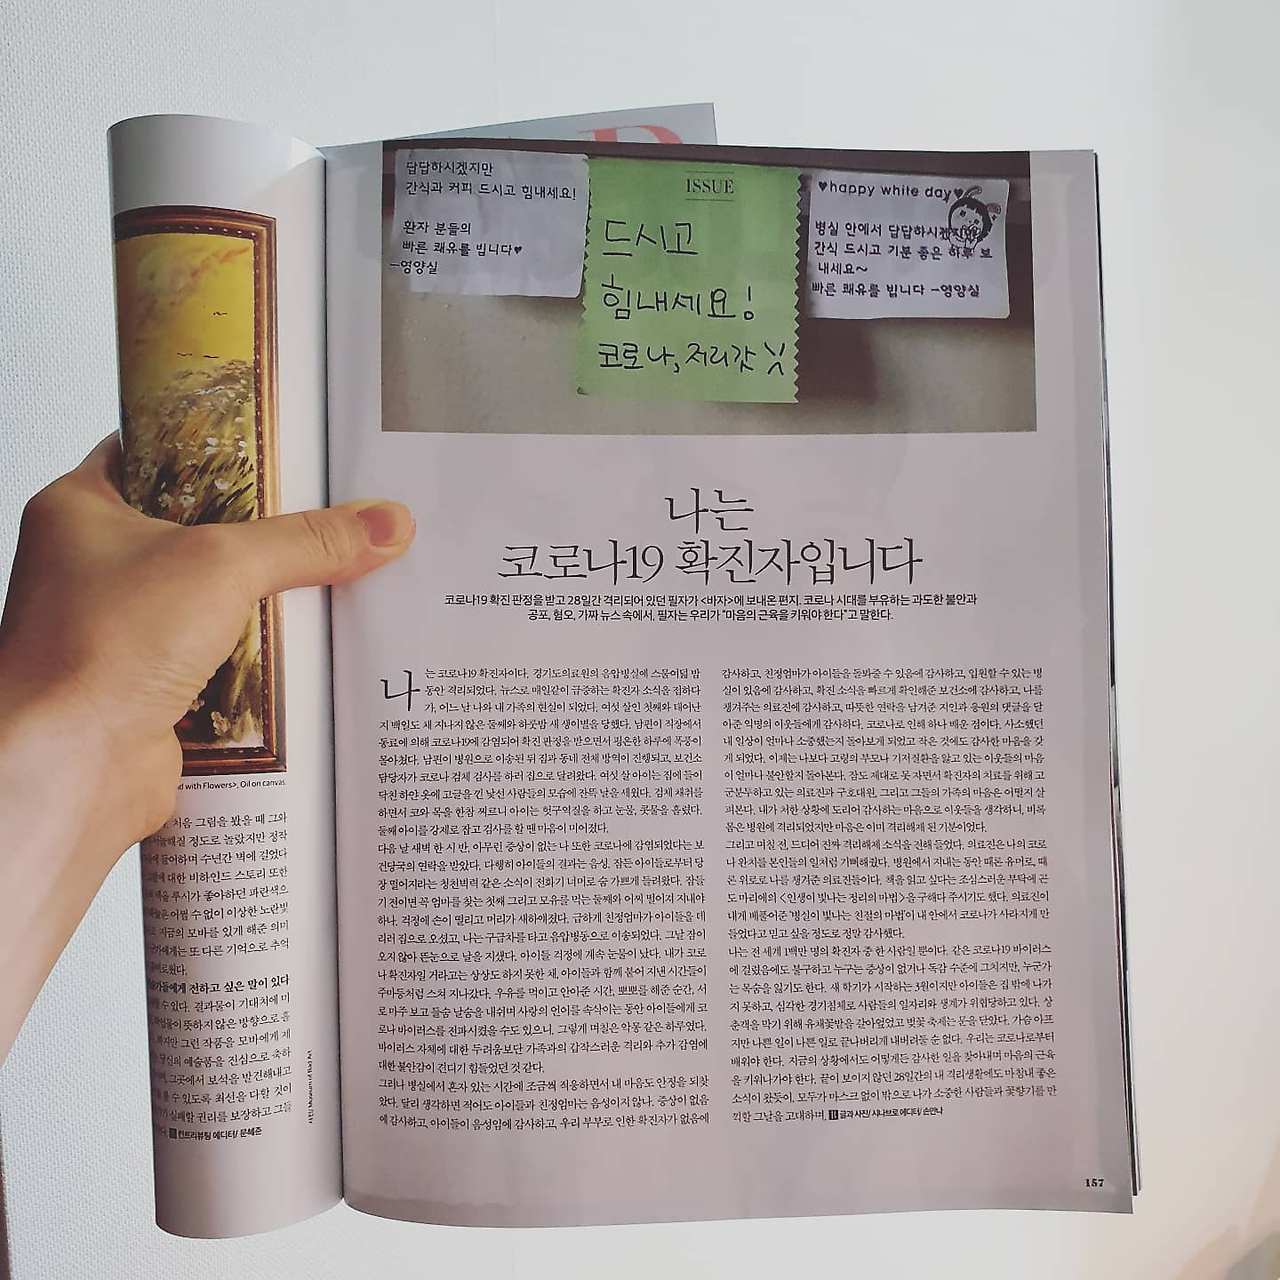 답답하시겠지만
간식과 커피 드시고 힘내세요!
환자 분들의
빠른 쾌유를 빕니다♥
-영양실
ISSUE
드시고
힘내세요!
코로나, 저리갓
♥happy white day♥
병실 안에서 답답하시겠지만
간식 드시고 기분 좋은 하루 보
내세요~
빠른 쾌유를 빕니다 -영양실
나는
코로나19 확진자입니다
코로나19 확진 판정을 받고 28일간 격리되어 있던 필자가 <바자>에 보내온 편지. 코로나 시대를 부유하는 과도한 불안과
공포, 혐오, 가짜 뉴스 속에서, 필자는 우리가 "마음의 근육을 키워야 한다"고 말한다.
나는 코로나19 확진자이다. 경기도의료원의 음압병실에 스물여덟 밤
동안 격리되었다. 뉴스로 매일같이 급증하는 확진자 소식을 접하다
가, 어느 날 나와 내 가족의 현실이 되었다. 여섯 살인 첫째와 태어난
지 백일도 채 지나지 않은 둘째와 하룻밤 새 생이별을 당했다. 남편이 직장에서
동료에 의해 코로나19에 감염되어 확진 판정을 받으면서 평온한 하루에 폭풍이
몰아쳤다. 남편이 병원으로 이송된 뒤 집과 동네 전체 방역이 진행되고, 보건소
담당자가 코로나 검체 검사를 하러 집으로 달려왔다. 여섯 살 아이는 집에 들이
닥친 하얀 옷에 고글을 낀 낯선 사람들의 모습에 잔뜩 날을 세웠다. 검체 채취를
하면서 코와 목을 한참 찌르니 아이는 헛구역질을 하고 눈물, 콧물을 흘렸다.
둘째 아이를 강제로 잡고 검사를 할 땐 마음이 미어졌다.
다음 날 새벽 한 시 반, 아무런 증상이 없는 나 또한 코로나에 감염되었다는 보
건당국의 연락을 받았다. 다행히 아이들의 결과는 음성. 잠든 아이들로부터 당
장 떨어지라는 청천벽력 같은 소식이 전화기 너머로 숨 가쁘게 들려왔다. 잠들
기 전이면 꼭 엄마를 찾는 첫째 그리고 모유를 먹는 둘째와 어찌 떨어져 지내야
하나. 걱정에 손이 떨리고 머리가 새하얘졌다. 급하게 친정엄마가 아이들을 데
리러 집으로 오셨고, 나는 구급차를 타고 음압병동으로 이송되었다. 그날 잠이
오지 않아 뜬눈으로 날을 지샜다. 아이들 걱정에 계속 눈물이 났다. 내가 코로
나 확진자일 거라고는 상상도 하지 못한 채, 아이들과 함께 붙어 지낸 시간들이
주마등처럼 스쳐 지나갔다. 우유를 먹이고 안아준 시간, 뽀뽀를 해준 순간, 서
로 마주 보고 들숨 날숨을 내쉬며 사랑의 언어를 속삭이는 동안 아이들에게 코
로나 바이러스를 전파시켰을 수도 있으니, 그렇게 며칠은 악몽 같은 하루였다.
바이러스 자체에 대한 두려움보단 가족과의 갑작스러운 격리와 추가 감염에
대한 불안감이 견디기 힘들었던 것 같다.
그러나 병실에서 혼자 있는 시간에 조금씩 적응하면서 내 마음도 안정을 되찾
았다. 달리 생각하면 적어도 아이들과 친정엄마는 음성이지 않나. 증상이 없음
에 감사하고, 아이들이 음성임에 감사하고, 우리 부부로 인한 확진자가 없음에
감사하고, 친정엄마가 아이들을 돌봐줄 수 있음에 감사하고, 입원할 수 있는 병
실이 있음에 감사하고, 확진 소식을 빠르게 확인해준 보건소에 감사하고, 나를
챙겨주는 의료진에 감사하고, 따뜻한 연락을 남겨준 지인과 응원의 댓글을 달
아준 익명의 이웃들에게 감사하다. 코로나로 인해 하나 배운 점이다. 사소했던
내 일상이 얼마나 소중했는지 돌아보게 되었고 작은 것에도 감사한 마음을 갖
게 되었다. 이제는 나보다 고령의 부모나 기저질환을 앓고 있는 이웃들의 마음
이 얼마나 불안할지 돌아본다. 잠도 제대로 못 자면서 확진자의 치료를 위해 고
군분투하고 있는 의료진과 구호대원, 그리고 그들의 가족의 마음은 어떨지 살
펴본다. 내가 처한 상황에 도리어 감사하는 마음으로 이웃들을 생각하니, 비록
몸은 병원에 격리되었지만 마음은 이미 격리해제 된 기분이었다.
그리고 며칠 전, 드디어 진짜 격리해제 소식을 전해 들었다. 의료진은 나의 코로
나 완치를 본인들의 일처럼 기뻐해줬다. 병원에서 지내는 동안 때론 유머로, 때
론 위로로 나를 챙겨준 의료진들이다. 책을 읽고 싶다는 조심스러운 부탁에 곤
도 마리에의 <인생이 빛나는 정리의 마법>을 구해다 주시기도 했다. 의료진이
내게 베풀어준 '병실이 빛나는 친절의 마법'이 내 안에서 코로나가 사라지게 만
들었다고 믿고 싶을 정도로 정말 감사했다.
나는 전 세계 1백만 명의 확진자 중 한 사람일 뿐이다. 같은 코로나19 바이러스
에 걸렸음에도 불구하고 누구는 증상이 없거나 독감 수준에 그치지만, 누군가
는 목숨을 잃기도 한다. 새 학기가 시작하는 3월이지만 아이들은 집 밖에 나가
지 못하고, 심각한 경기침체로 사람들의 일자리와 생계가 위협당하고 있다. 상
춘객을 막기 위해 유채꽃밭을 갈아엎었고 벚꽃 축제는 문을 닫았다. 가슴 아프
지만 나쁜 일이 나쁜 일로 끝나버리게 내버려둘 순 없다. 우리는 코로나로부터
배워야 한다. 지금의 상황에서도 어떻게든 감사한 일을 찾아내며 마음의 근육
을 키워나가야 한다. 끝이 보이지 않던 28일간의 내 격리생활에도 마침내 좋은
소식이 왔듯이, 모두가 마스크 없이 밖으로 나가 소중한 사람들과 꽃향기를 만
끽할 그날을 고대하며. 글과 사진/ 시나브로 에디터/ 손안나
157
with Flowers>, Oil on canvas.
처음 그림을 봤을 때 그와
해질 정도로 놀랐지만 정작
에 들어하며 수년간 벽에 걸었다
에 대한 비하인드 스토리 또한
루시가 좋아하던 파란색으
어쩔 수 없이 이상한 노란빛
지금의 모바를 있게 해준 의미
에게는 또 다른 기억으로 추억
들에게 전하고 싶은 말이 있다
수 있다. 결과물이 기대치에 미
뜻하지 않은 방향으로 흘
하지만 그런 작품을 모바에게 제
당신의 예술품을 진심으로 축하
그곳에서 보석을 발견해내고
수 있도록 최선을 다할 것이
실패할 권리를 보장하고 그들
컨트리뷰팅 에디터/ 문혜준